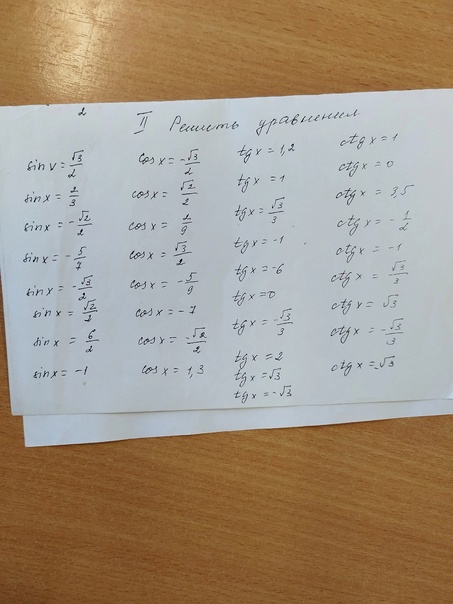 2
II Решить уравнения
sin x = √3/2
sin x = 2/3
sin x = -√2/2
sin x = -5/7
sin x = -√3/2
sin x = √2/2
sin x = 6/2
sin x = -1
cos x = -√3/2
cos x = √2/2
cos x = 2/9
cos x = √3/2
cos x = -5/9
cos x = -7
cos x = -√2/2
cos x = 1,3
tg x = 1,2
tg x = 1
tg x = √3/3
tg x = -1
tg x = -6
tg x = 0
tg x = -√3/3
tg x = 2
tg x = √3
tg x = -√3
ctg x = 1
ctg x = 0
ctg x = 3,5
ctg x = -1/2
ctg x = -1
ctg x = √3/3
ctg x = √3
ctg x = -√3/3
ctg x = -√3